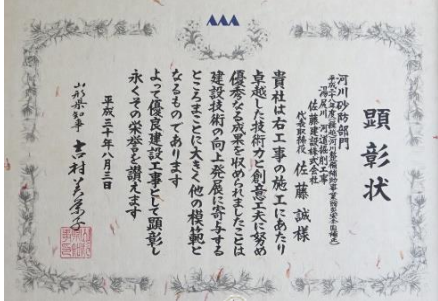 顕彰状
河川砂防部門
湯尻川 河道掘削工事
佐藤建設株式会社
代表取締役 佐藤 誠 様
貴社は右工事の施工にあたり
卓越した技術力と創意工夫に努め
優秀なる成果を収められましたことは
建設技術の向上発展に寄与する
ところまことに大きく他の模範と
なるものであります
よって優良建設工事として顕彰し
永くその栄誉を讃えます
平成三十年八月三日
山形県知事 吉村美栄子